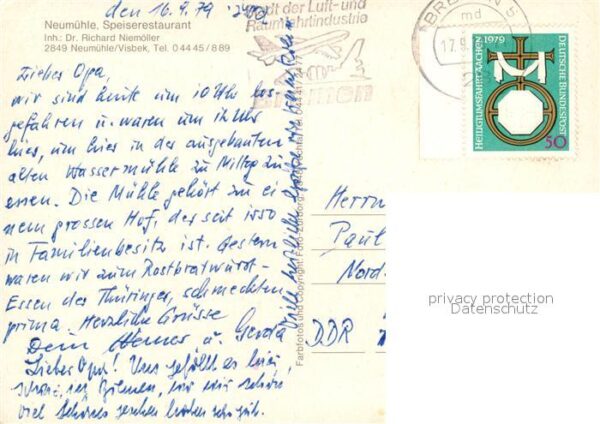 den 16.9.79
Neumühle, Speiserestaurant
Inh.: Dr. Richard Niemöller
2849 Neumühle/Visbek, Tel. 0 44 45 / 8 89
Lieber Opa,
wir sind heute um 10 Uhr los-
gefahren u. waren um 12 Uhr
hier, um hier in der ausgebauten
alten Wassermühle zu Mittag zu
essen. Die Mühle gehört zu ei
nem grossen Hof, der seit 1550
in Familienbesitz ist. Gestern
waren wir zum Rostbratwurst-
Essen der Thüringer, schmeckten
prima. Herzliche Grüsse
Dein Werner u. Gerda
Lieber Opa! Uns gefällt es hier,
wir schon
viel Schönes gesehen haben
Viele herzliche Grüße
Farbfotos und Copyright: Foto-
Stadt der Luft- und
Raumfahrtindustrie
Bremen
BREMEN 5
md
17.9.
HEILIGTUMSFAHRT AACHEN 1979
DEUTSCHE BUNDESPOST
50
Herrn
Paul
Nord-
DDR
privacy protection
Datenschutz